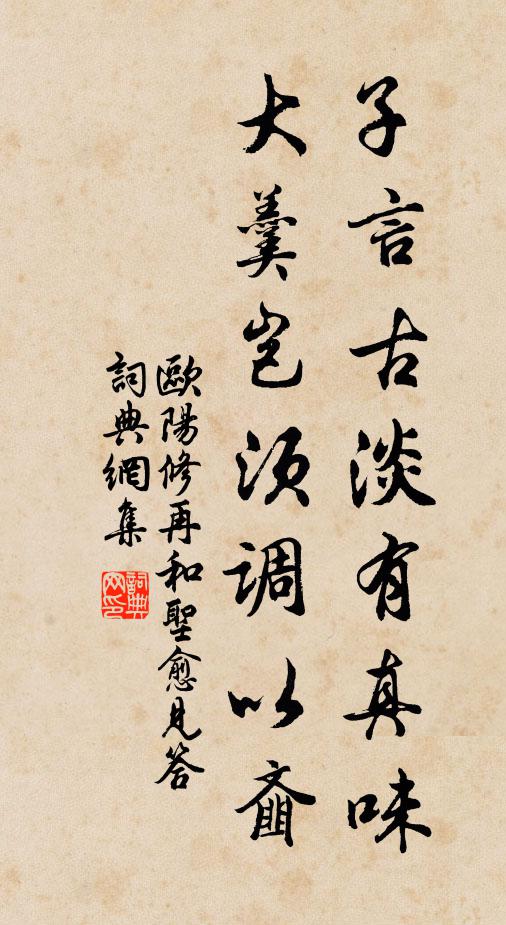 子言古淡有真味
大羹豈須調以齑
歐陽修再和聖愈見答
詞典網集
詞典
网印